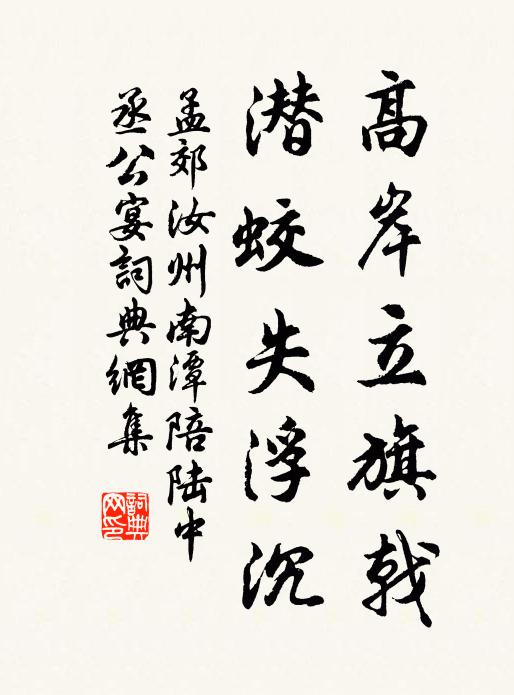 高岸立旗戟
潜蛟失浮沉
孟郊汝州南潭陪陆中
丞公宴詞典網集
詞典网印